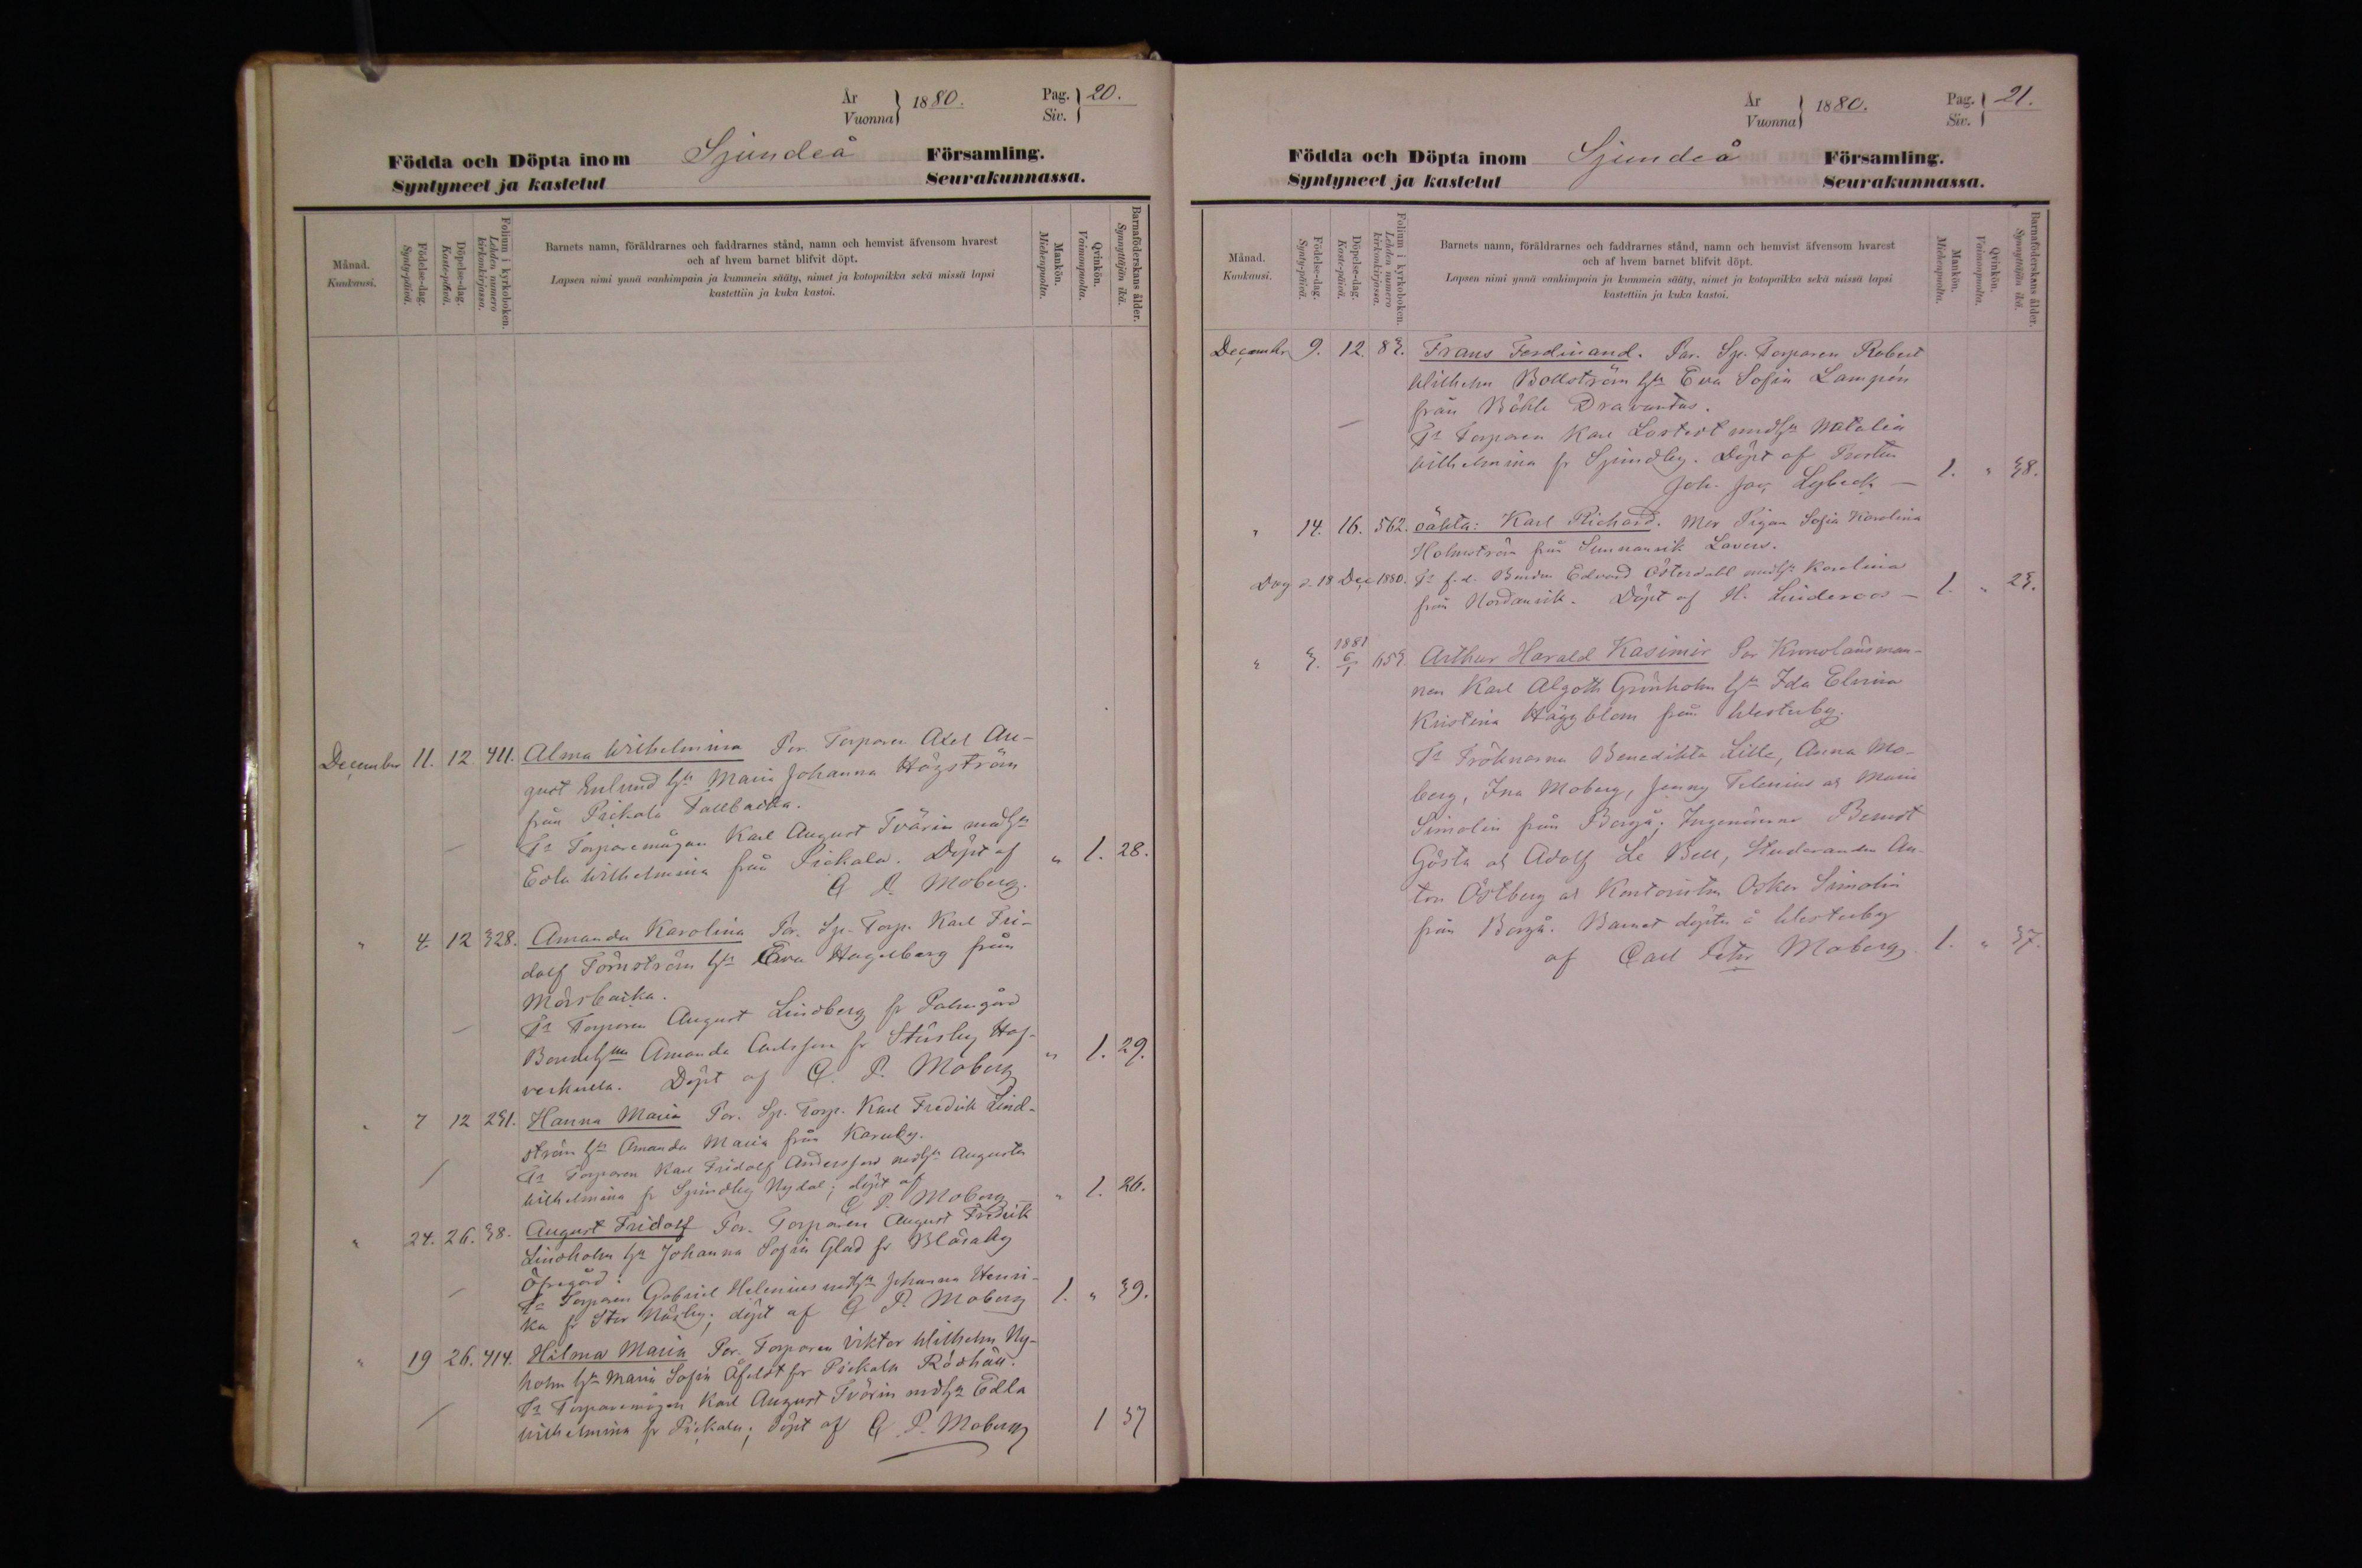 År
Vuonna
1880.
Pag.
Siv.
20.
Födda och Döpta inom Sjundeå Församling.
Syntyneet ja kastetut Seurakunnassa.
Månad.
Kuukausi.
Födelse-dag.
Synty-päivä.
Döpelse-dag.
Kaste-päivä.
Folium i kyrkoboken.
Lehden numero
kirkonkirjassa.
Barnets namn, föräldrarnes och faddrarnes stånd, namn och hemvist äfvensom hvarest
och af hvem barnet blifvit döpt.
Lapsen nimi ynnä vanhimpain ja kummein sääty, nimet ja kotopaikka sekä missä lapsi
kastettiin ja kuka kastoi.
Mankön.
Miehenpuolta.
Qvinkön.
Vaimonpuolta.
Barnaföderskans ålder.
Synnyttäjän ikä.
December 11. 12. 411. Alma Wilhelmina Par. Torparen Axel Au-
gust Enlund hu Maria Johanna Högström
från Pickala Tallbacka.
Fr Torparemågen Karl August Tvärin med hu
Edla Wilhelmina från Pickala. Döpt af
C P. Moberg. " 1. 28.
" 4. 12 328. Amanda Karolina Par. Sp. Torp. Karl Fri-
dolf Törnström hu Eva Hagelberg från
Mårsbacka.
Fr Torparen August Lindberg fr Palmgård
Amanda Carlsson fr Störsby Haf-
verkulla. Döpt af C. P. Moberg " 1. 29.
" 7 12 291. Hanna Maria Par. Sp. Torp. Karl Fredrik Lind-
ström hu Amanda Maria från Karuby.
Fr Torparen Karl Fridolf Andersson med hu Augusta
Wilhelmina fr Sjundby Nydal; döpt af
C P. Moberg " 1. 26.
" 24. 26. 38. August Fridolf Par. Torparen August Fredrik
Lindholm hu Johanna Sofia Glad fr Blåsaby
Öfvergård.
Fr Torparen Gabriel Helenius med hu Johanna Henri-
ka fr Stor Näsby; döpt af C P. Moberg 1. " 39.
" 19 26. 414. Hilma Maria Par. Torparen Viktor Wilhelm Ny-
holm hu Maria Sofia Åfeldt fr Pickala Rödhäll.
Fr Torparemågen Karl August Tvärin med hu Edla
Wilhelmina fr Pickala; döpt af C P. Moberg 1 37
År
Vuonna
1880.
Pag.
Siv.
21.
Födda och Döpta inom Sjundeå Församling.
Syntyneet ja kastetut Seurakunnassa.
Månad.
Kuukausi.
Födelse-dag.
Synty-päivä.
Döpelse-dag.
Kaste-päivä.
Folium i kyrkoboken.
Lehden numero
kirkonkirjassa.
Barnets namn, föräldrarnes och faddrarnes stånd, namn och hemvist äfvensom hvarest
och af hvem barnet blifvit döpt.
Lapsen nimi ynnä vanhimpain ja kummein sääty, nimet ja kotopaikka sekä missä lapsi
kastettiin ja kuka kastoi.
Mankön.
Miehenpuolta.
Qvinkön.
Vaimonpuolta.
Barnaföderskans ålder.
Synnyttäjän ikä.
December 9. 12. 83. Frans Ferdinand. Par. Sp. Torparen Robert
Wilhelm Bollström hu Eva Sofia Lampén
från Böhle Dravantas.
Fr Torparen Karl Lostedt med hu Natalia
Wilhelmina fr Sjundby. Döpt af Prosten
Joh. Jac. Lybeck — 1. " 38.
" 14. 16. 562. oäkta: Karl Richard. Mor Pigan Sofia Karolina
Holmström från Sunnanvik Lovers.
Dog d. 18 Dec 1880. Fr f.d. Bonden Edvard Österdahl med hu Karolina
från Nordanvik. Döpt af H. Linderoos — 1. " 23.
" 3. 1881 6/1 653. Arthur Harald Kasimir Par Kronolänsman-
nen Karl Algoth Grönholm hu Ida Elvira
Kristina Häggblom från Westerby.
Fr Fröknarna Benedikta Lille, Anna Mo-
berg, Ina Moberg, Jenny Telenius o. Maria
Simolin från Borgå; Ingeniörerne Berndt
Gösta o. Adolf Le Bell, Studeranden An-
ton Östberg o. Kontoristen Oskar Simolin
från Borgå. Barnet döptes å Westerby
af Carl Petr Moberg. 1. " 37.